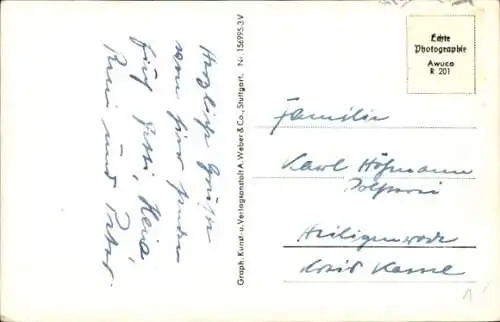 Herzliche Grüße
von hier senden
Rosi und Peter.
Graph. Kunst- u. Verlagsanstalt A. Weber & Co., Stuttgart. Nr. 156995.3 V
Echte
Photographie
Awuco
R 201
Familie
Karl Hofmann
Heiligenrode
Kreis Kassel